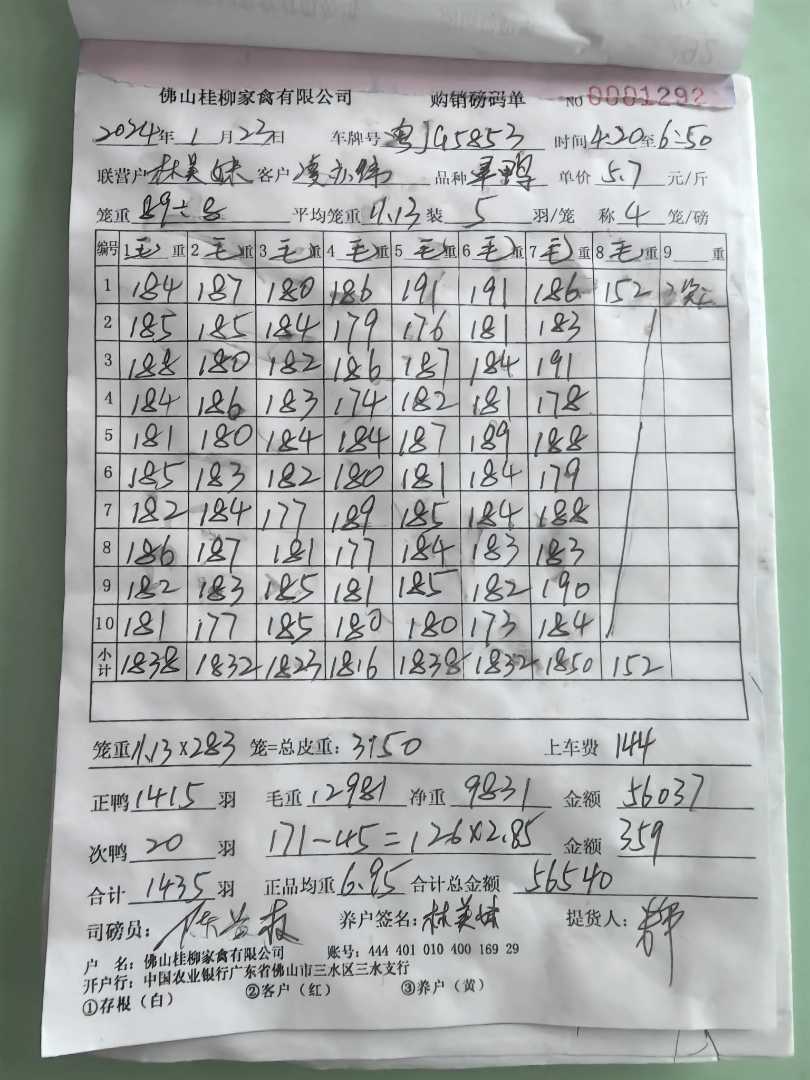 佛山桂柳家禽有限公司 购销磅码单 NO 0001292
2024年 1月23日 车牌号 粤JG5853 时间4:20至6:50
联营户 林美妹 客户 品种 单鸭 单价 5.7 元/斤
笼重 89÷8 平均笼重 11.13 装 5 羽/笼 称 4 笼/磅
编号 1毛重 2毛重 3毛重 4毛重 5毛重 6毛重 7毛重 8毛重 9 重
1 184 187 180 186 191 191 186 152 3笼
2 185 185 184 179 176 181 183
3 188 180 182 186 187 184 191
4 184 186 183 174 182 181 178
5 181 180 184 184 187 189 188
6 185 183 182 180 181 184 179
7 182 184 177 189 185 184 188
8 186 187 181 177 184 183 183
9 182 183 185 181 185 182 190
10 181 177 185 180 180 173 184
小计 1838 1832 1823 1816 1838 1832 1850 152
笼重11.13X283 笼=总皮重: 3150 上车费 144
正鸭1415羽 毛重 12981 净重 9831 金额 56037
次鸭 20 羽 171-45=126X2.85 金额 359
合计 1435 羽 正品均重 6.95 合计总金额 56540
司磅员: 养户签名: 林美妹 提货人:
户 名: 佛山桂柳家禽有限公司 账号: 444 401 010 400 169 29
开户行: 中国农业银行广东省佛山市三水区三水支行
①存根(白) ②客户(红) ③养户(黄)